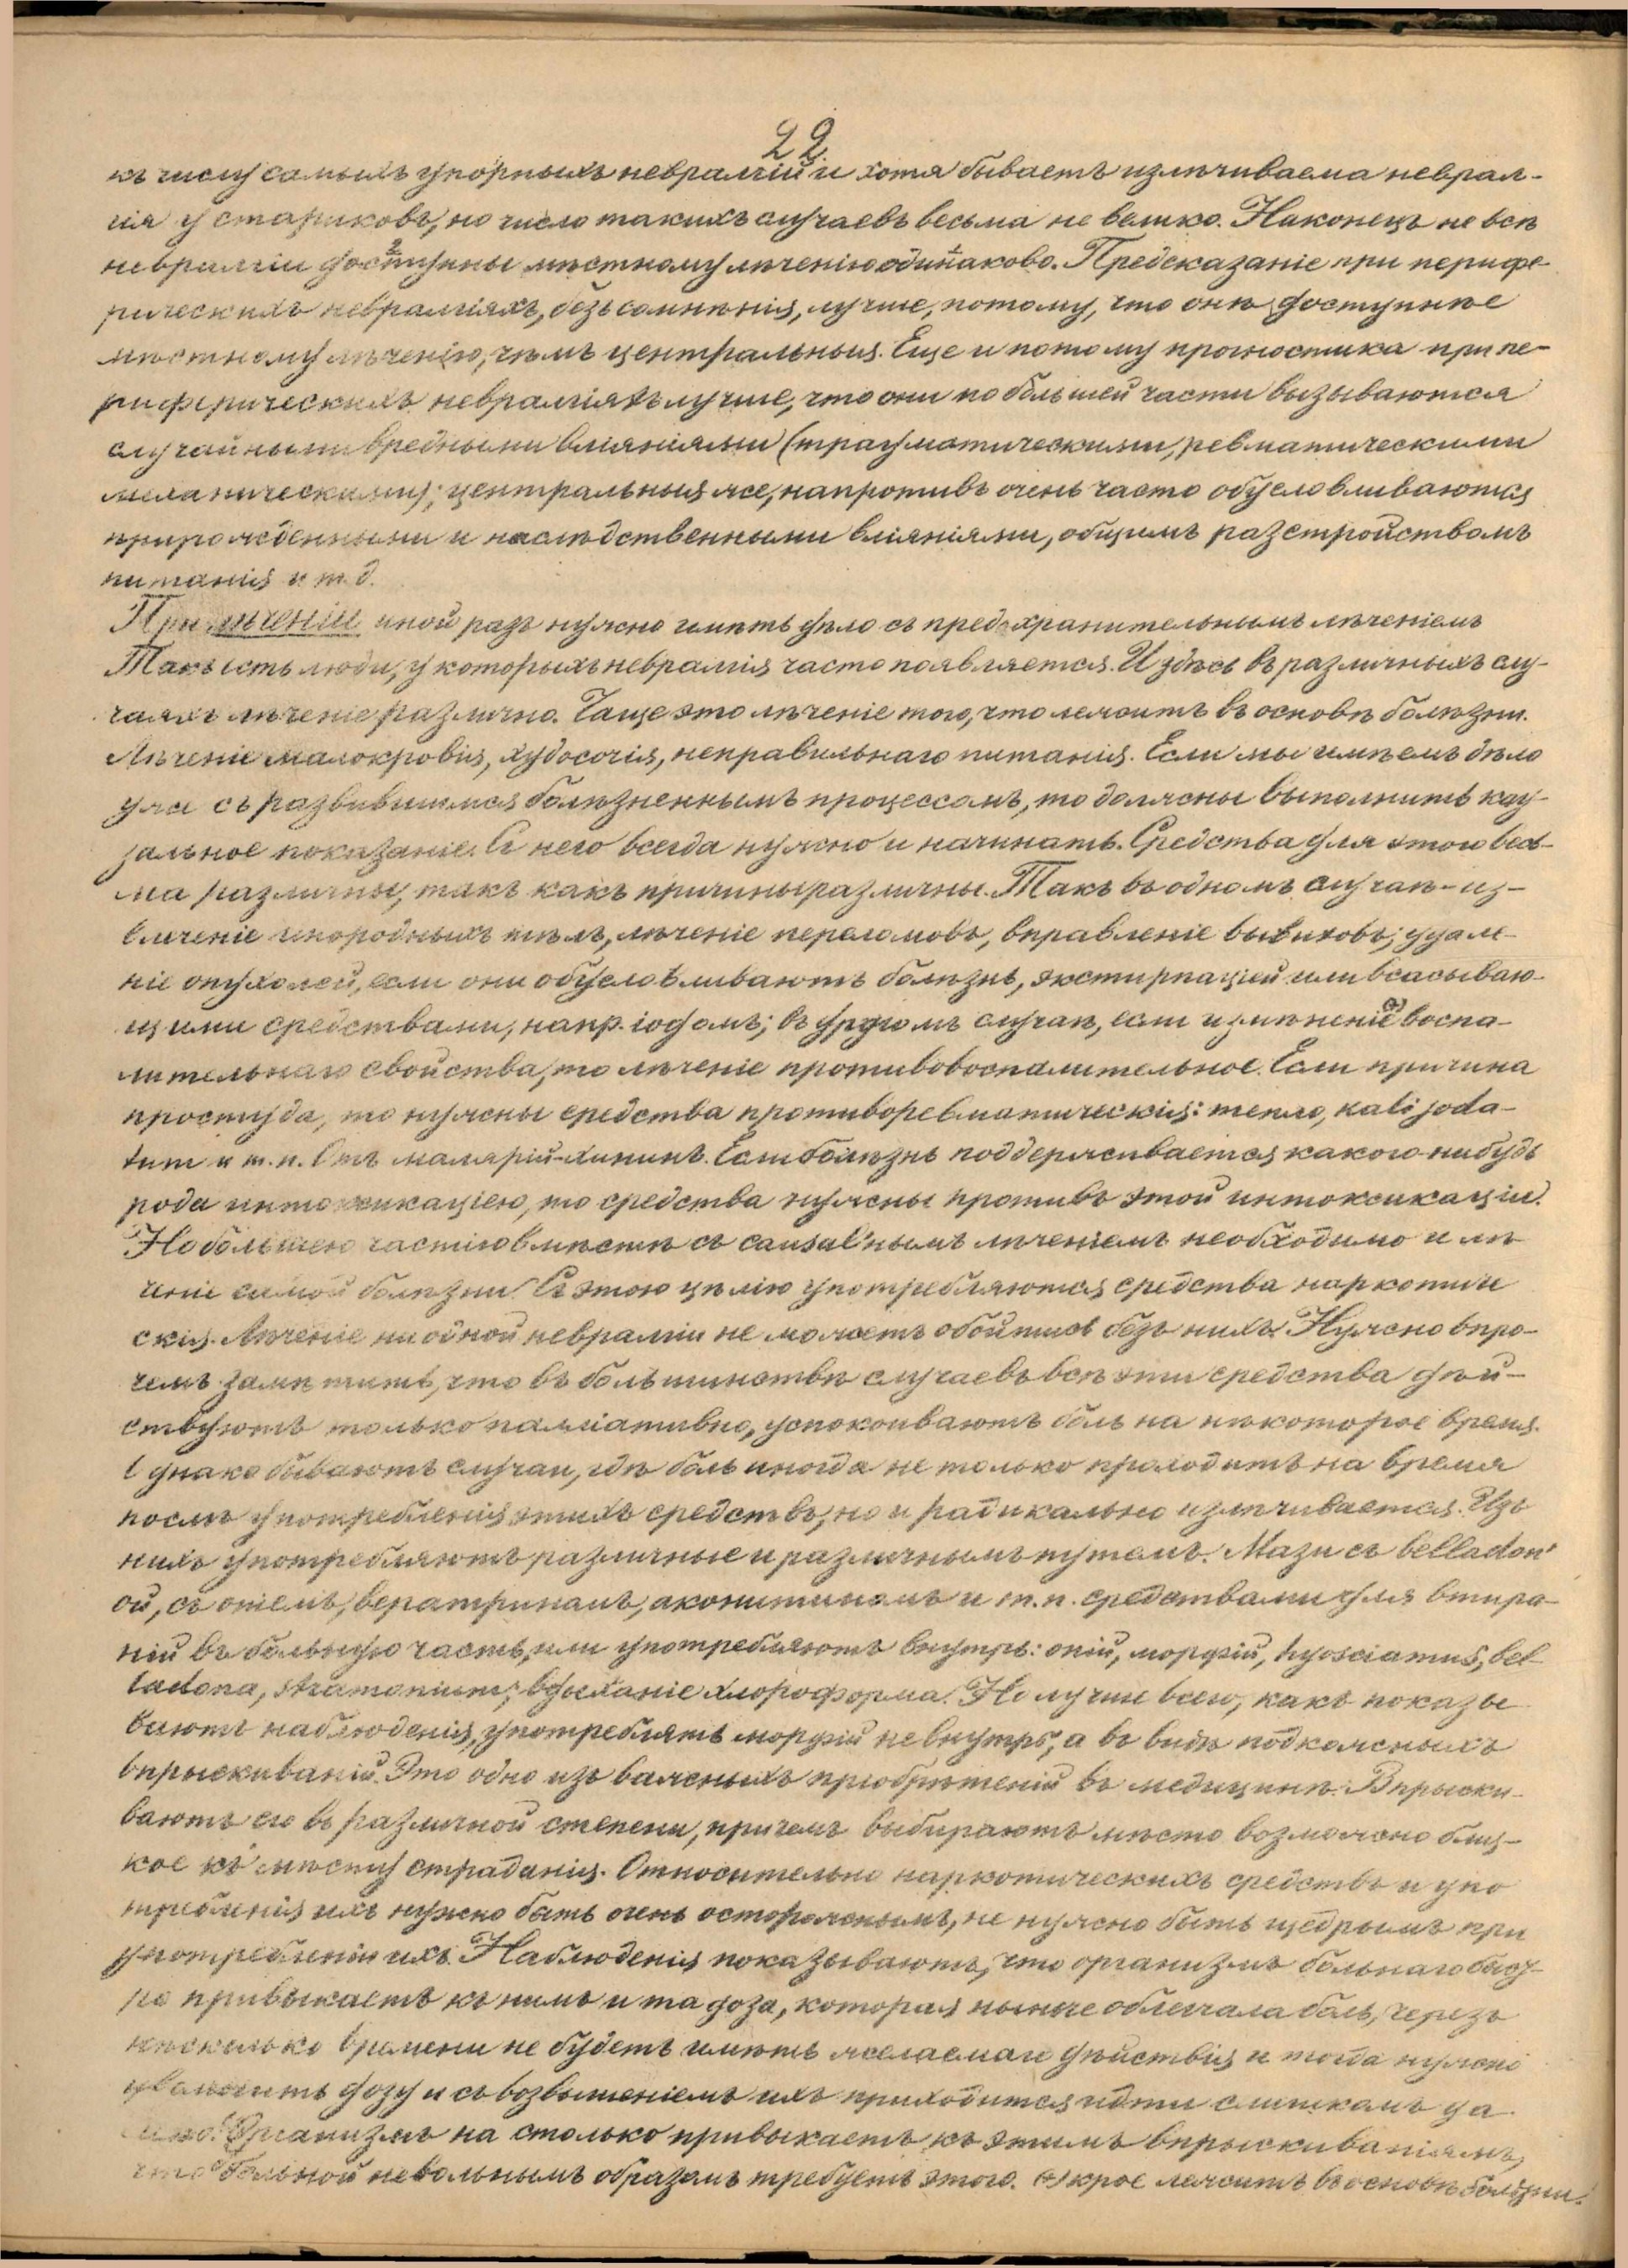 22
къ числу самыхъ упорныхъ невралгій и хотя бываетъ излѣчиваема неврал-
гія у стариковъ, но число такихъ случаевъ весьма не велико. Наконецъ не всѣ
невралгіи доступны мѣстному лѣченію одинаково. Предсказаніе при перифе-
рическихъ невралгіяхъ, безъ сомнѣнія, лучше, потому, что онѣ доступнѣе
мѣстному лѣченію, чѣмъ центральныя. Еще и потому прогностика при пе-
риферическихъ невралгіяхъ лучше, что они по большей части вызываются
случайными вредными вліяніями (травматическими, ревматическими
механическими); центральныя же, напротивъ очень часто обусловливаются
прирожденными и наслѣдственными вліяніями, общимъ разстройствомъ
питанія и т. д.
При лѣченіи иной разъ нужно имѣть дѣло съ предохранительнымъ лѣченіемъ
Такъ есть люди, у которыхъ невралгія часто появляется. И здѣсь въ различныхъ слу-
чаяхъ лѣченіе различно. Чаще это лѣченіе того, что лежитъ въ основѣ болѣзни.
Лѣченіе малокровія, худосочія, неправильнаго питанія. Если мы имѣемъ дѣло
уже съ развившимся болѣзненнымъ процессомъ, то должны выполнить кау-
зальное показаніе. Съ него всегда нужно и начинать. Средства для этого весь-
ма различны, такъ какъ причины различны. Такъ въ одномъ случаѣ - из-
влеченіе инородныхъ тѣлъ, лѣченіе переломовъ, вправленіе вывиховъ; удале-
ніе опухолей, если они обусловливаютъ болѣзнь, экстирпаціей или всасываю-
щими средствами, напр. іодомъ; въ другомъ случаѣ, если измѣненіе воспа-
лительнаго свойства, то лѣченіе противовоспалительное. Если причина
простуда, то нужны средства противоревматическія: тепло, kali joda-
tum и т. п. Отъ маляріи - хининъ. Если болѣзнь поддерживается какого-нибудь
рода интоксикаціею, то средства нужны противъ этой интоксикаціи.
Но большею частію вмѣстѣ съ causal'нымъ лѣченіемъ необходимо и лѣ
ченіе самой болѣзни. Съ этою цѣлію употребляются средства наркотиче
скія. Лѣченіе ни одной невралгіи не можетъ обойтись безъ нихъ. Нужно впро-
чемъ замѣтить, что въ большинствѣ случаевъ всѣ эти средства дѣй-
ствуютъ только палліативно, успокоиваютъ боль на нѣкоторое время.
Однако бываютъ случаи, гдѣ боль иногда не только проходитъ на время
послѣ употребленія этихъ средствъ, но и радикально излѣчивается. Изъ
нихъ употребляютъ различные и различнымъ путемъ. Мази съ belladon'
ой, съ опіемъ, вератриномъ, аконитиномъ и т. п. средствами для втира-
ній въ больную часть, или употребляютъ внутрь: опій, морфій, hyosciamus, bel-
ladona, stramonium; вдыханіе хлороформа. Но лучше всего, какъ показы
ваютъ наблюденія, употреблять морфій не внутрь, а въ видѣ подкожныхъ
впрыскиваній. Это одно изъ важныхъ пріобрѣтеній въ медицинѣ. Впрыски-
ваютъ его въ различной степени, причемъ выбираютъ мѣсто возможно близ-
кое къ мѣсту страданія. Относительно наркотическихъ средствъ и упо
требленія ихъ нужно быть очень осторожнымъ, не нужно быть щедрымъ при
употребленіи ихъ. Наблюденія показываютъ, что организмъ больнаго быст-
ро привыкаетъ къ нимъ и та доза, которая нынче облегчала боль, черезъ
нѣсколько времени не будетъ имѣть желаемаго дѣйствія и тогда нужно
увеличить дозу и съ возвышеніемъ ихъ приходится идти слишкомъ да
леко. Организмъ на столько привыкаетъ къ этимъ впрыскиваніямъ,
что больной невольнымъ образомъ требуетъ этого. лежитъ въ основѣ болѣзни.